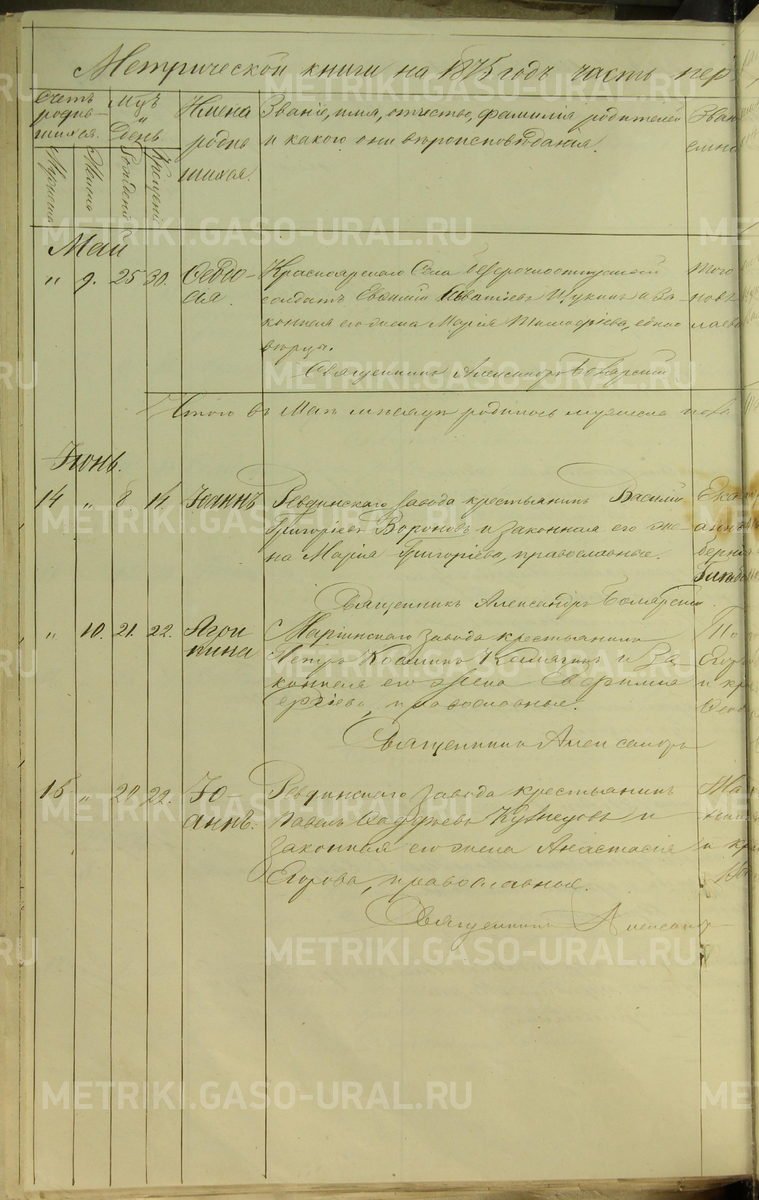 Метрической книги на 1875 годъ часть пер
Счетъ родив-
шихся.
Мужеска
Женска
Мѣс. и День.
Рожденія
Крещенія
Имена
родив
шихся.
Званіе, имя, отчество, фамилія родителей
и какого они вѣроисповѣданія.
Зван
Май
" 9. 25 30. Ѳеодо-
сія.
Красноярского Села безсрочноотпускной
солдатъ Евѳимій
конная его жена Марія Тимоѳіева, едино
вѣрцы.
того
Священникъ Александръ Боярскій
Итого въ Маѣ мѣсяцѣ родилось мужеска пола
Іюнь.
14 " 8. 11. Іоаннъ
Ревдинского завода крестьянинъ Василій
Григоріевъ Вороновъ и законная его же-
на Марія Григоріева, православные.
Ека
берній
Священникъ Александръ Боярскій.
" 10. 21. 22. Агри
пина
Маріинского завода крестьянинъ
Петръ Козминъ и за-
конная его жена Евфимія
Сергіева, православные.
и кр
Священникъ Александръ
15 " 20 22. Іо-
аннъ.
Ревдинского завода крестьянинъ
Павелъ Кузнецовъ и
законная его жена Анастасія
Егорова, православные.
Ма
и кр
Священникъ Александр
METRIKI.GASO-URAL.RU